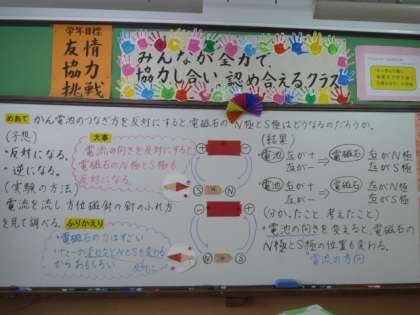 学年目標
友情
協力
挑戦
みんなが全力で、
協力し合い、認め合えるクラス
めあて かん電池のつなぎ方を反対にすると、電磁石のN極とS極はどうなるのだろうか。
(予想)
・反対になる。
・逆になる。
(実験の方法)
電流を流し方位磁針の針のふれ方
を見て調べる。
大事
電流の向きを反対にすると
電磁石のN極もS極も
反対になる。
ふりかえり
・電磁石の力はすごい
NとSも変わる
からおもしろい
+
-
S
N
-
+
N
S
(結果)
電池 左が+ 右が- ⇒ 電磁石 左がS極 右がN極
電池 左が- 右が+ ⇒ 電磁石 左がN極 右がS極
(分かったこと 考えたこと)
・電池の向きを変えると、電磁石の
N極とS極の位置も変わる。
電流の方向